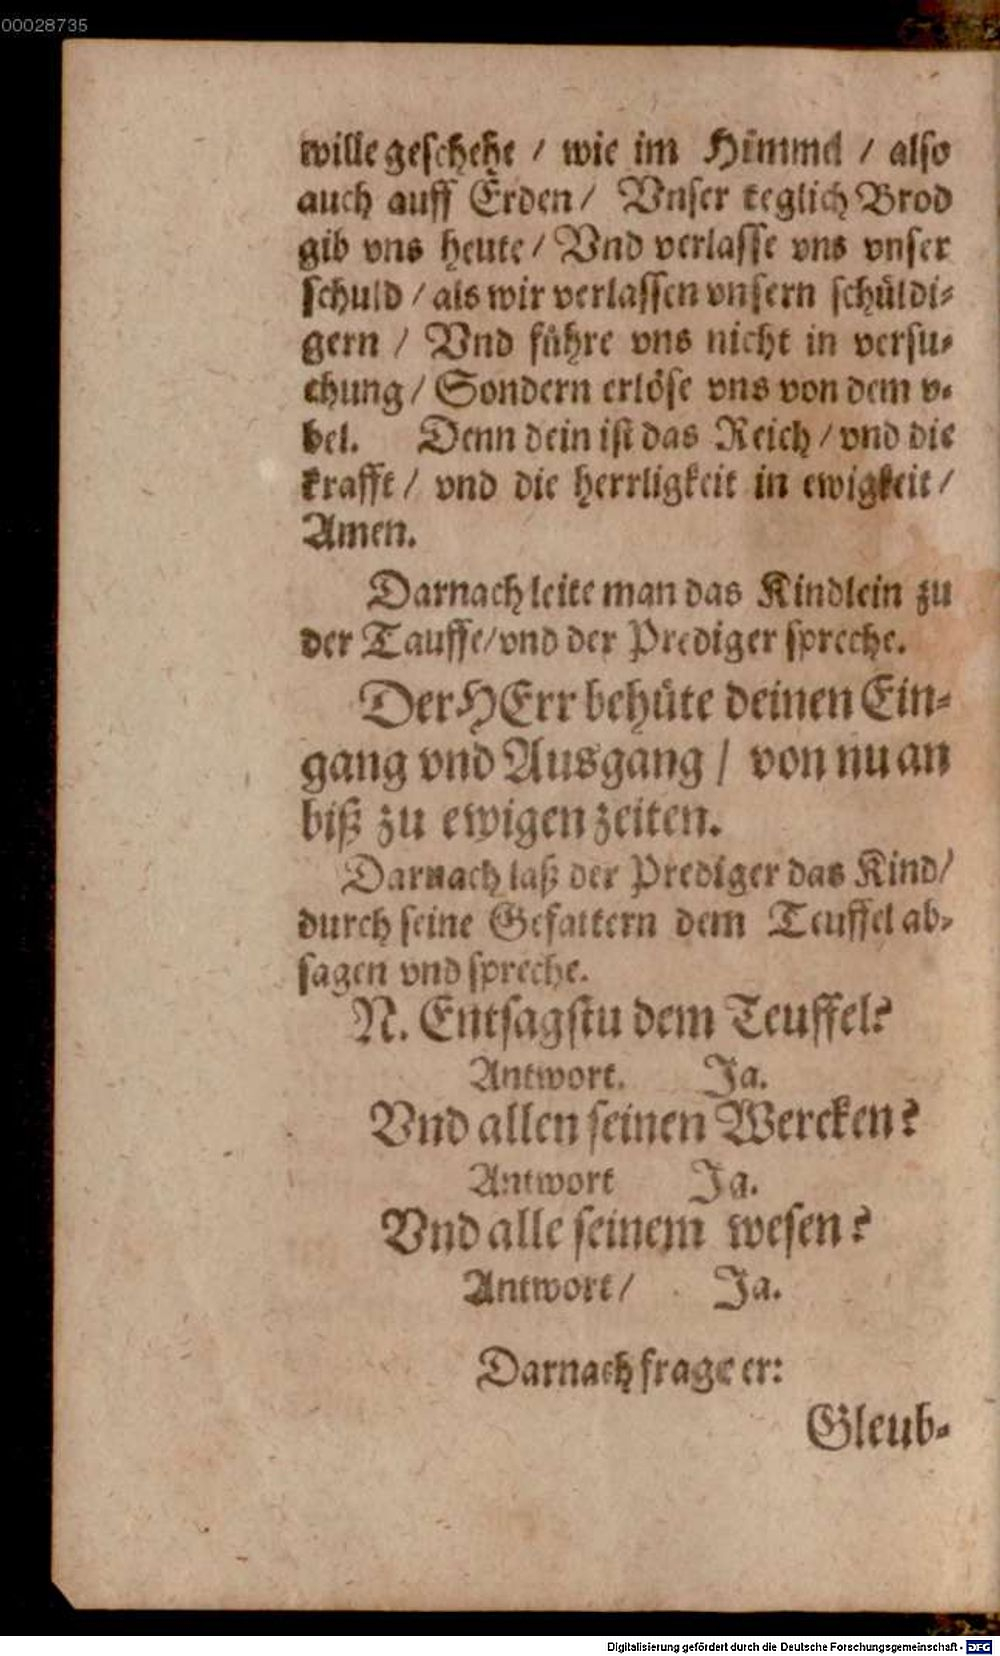 00028735
wille geschehe / wie im Himmel / also
auch auff Erden / Vnser teglich Brod
gib vns heute / Vnd verlasse vns vnser
schuld / als wir verlassen vnsern schüldi-
gern / Vnd führe vns nicht in versu-
chung / Sondern erlöse vns von dem v-
bel. Denn dein ist das Reich / vnd die
krafft / vnd die herrligkeit in ewigkeit /
Amen.
Darnach leite man das Kindlein zu
der Tauffe / vnd der Prediger spreche.
Der HErr behüte deinen Ein-
gang vnd Ausgang / von nu an
biß zu ewigen zeiten.
Darnach laß der Prediger das Kind /
durch seine Gefattern dem Teuffel ab-
sagen vnd spreche.
N. Entsagstu dem Teuffel?
Antwort. Ja.
Vnd allen seinen Wercken?
Antwort Ja.
Vnd alle seinem wesen?
Antwort / Ja.
Darnach frage er:
Gleub-
Digitalisierung gefördert durch die Deutsche Forschungsgemeinschaft - DFG